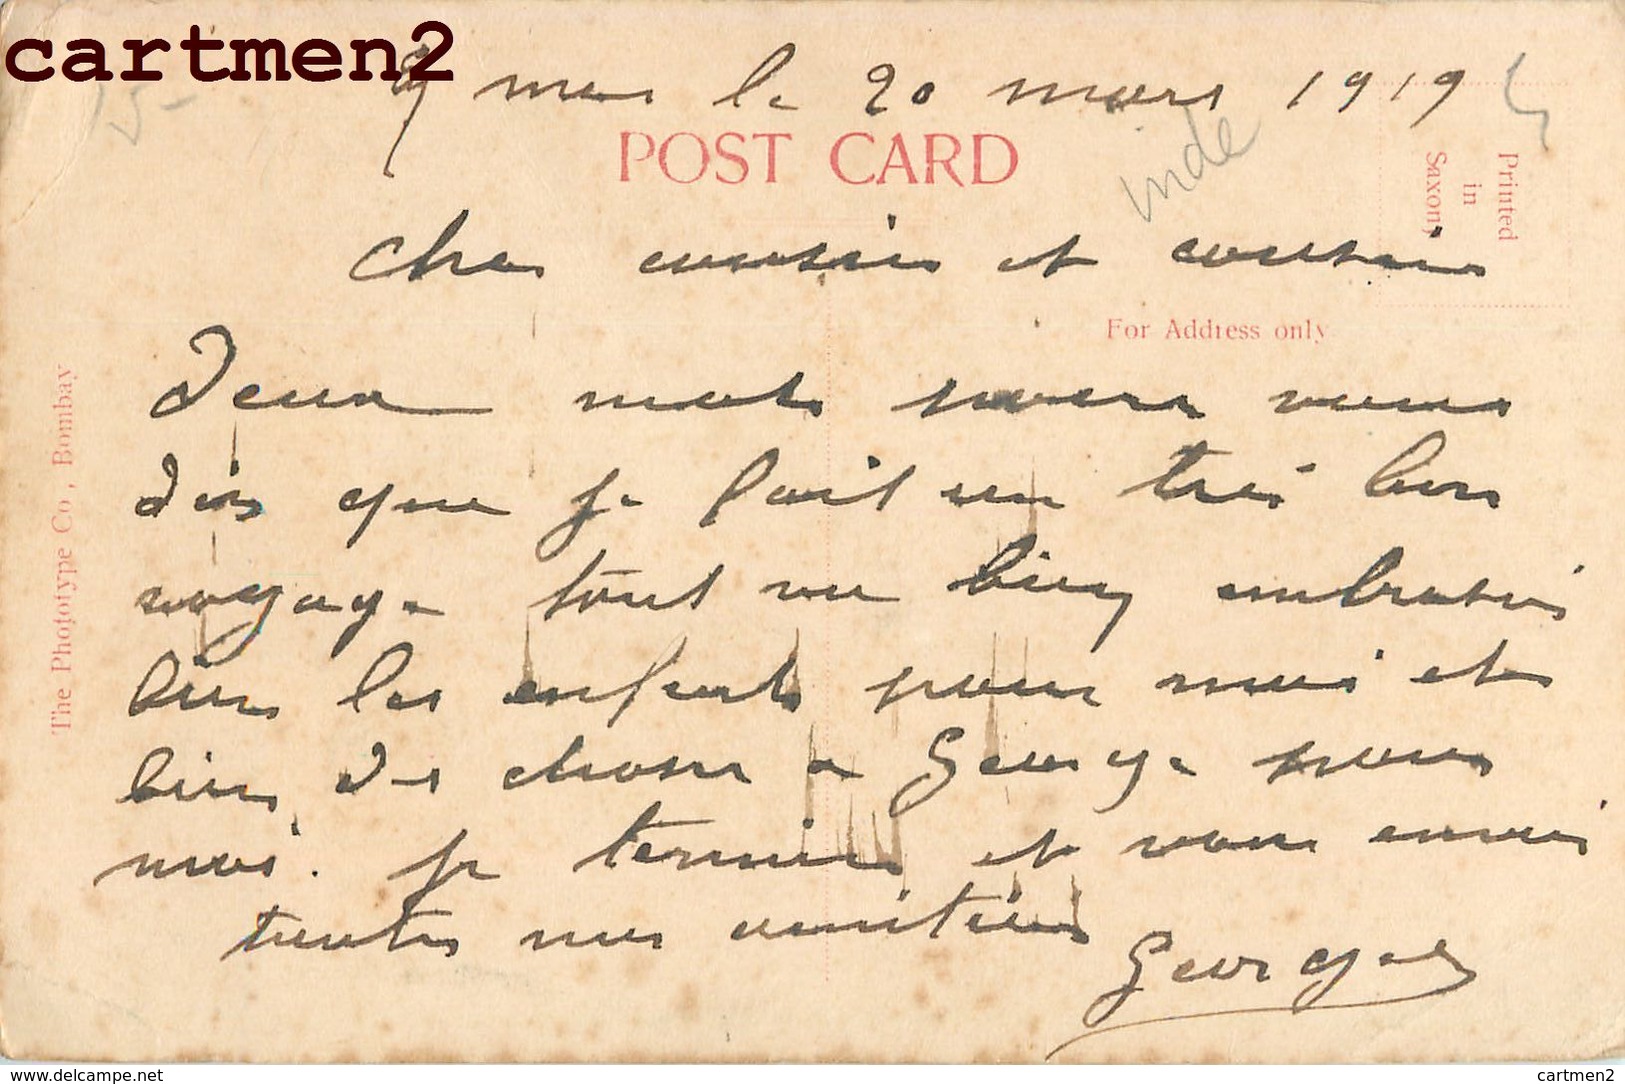 cartmen2
mer le 20 mars 1919
POST CARD
inde
Printed
in
Saxony
Cher cousin et cousine
For Address only
Deux mots pour vous
dire que je fait un très bon
voyage tout va bien embrasser
bien les enfants pour moi et
bien des chose a George pour
moi. je termine et vous envoi
toutes mes amitiés
Georges
The Phototype Co., Bombay
www.delcampe.net
cartmen2